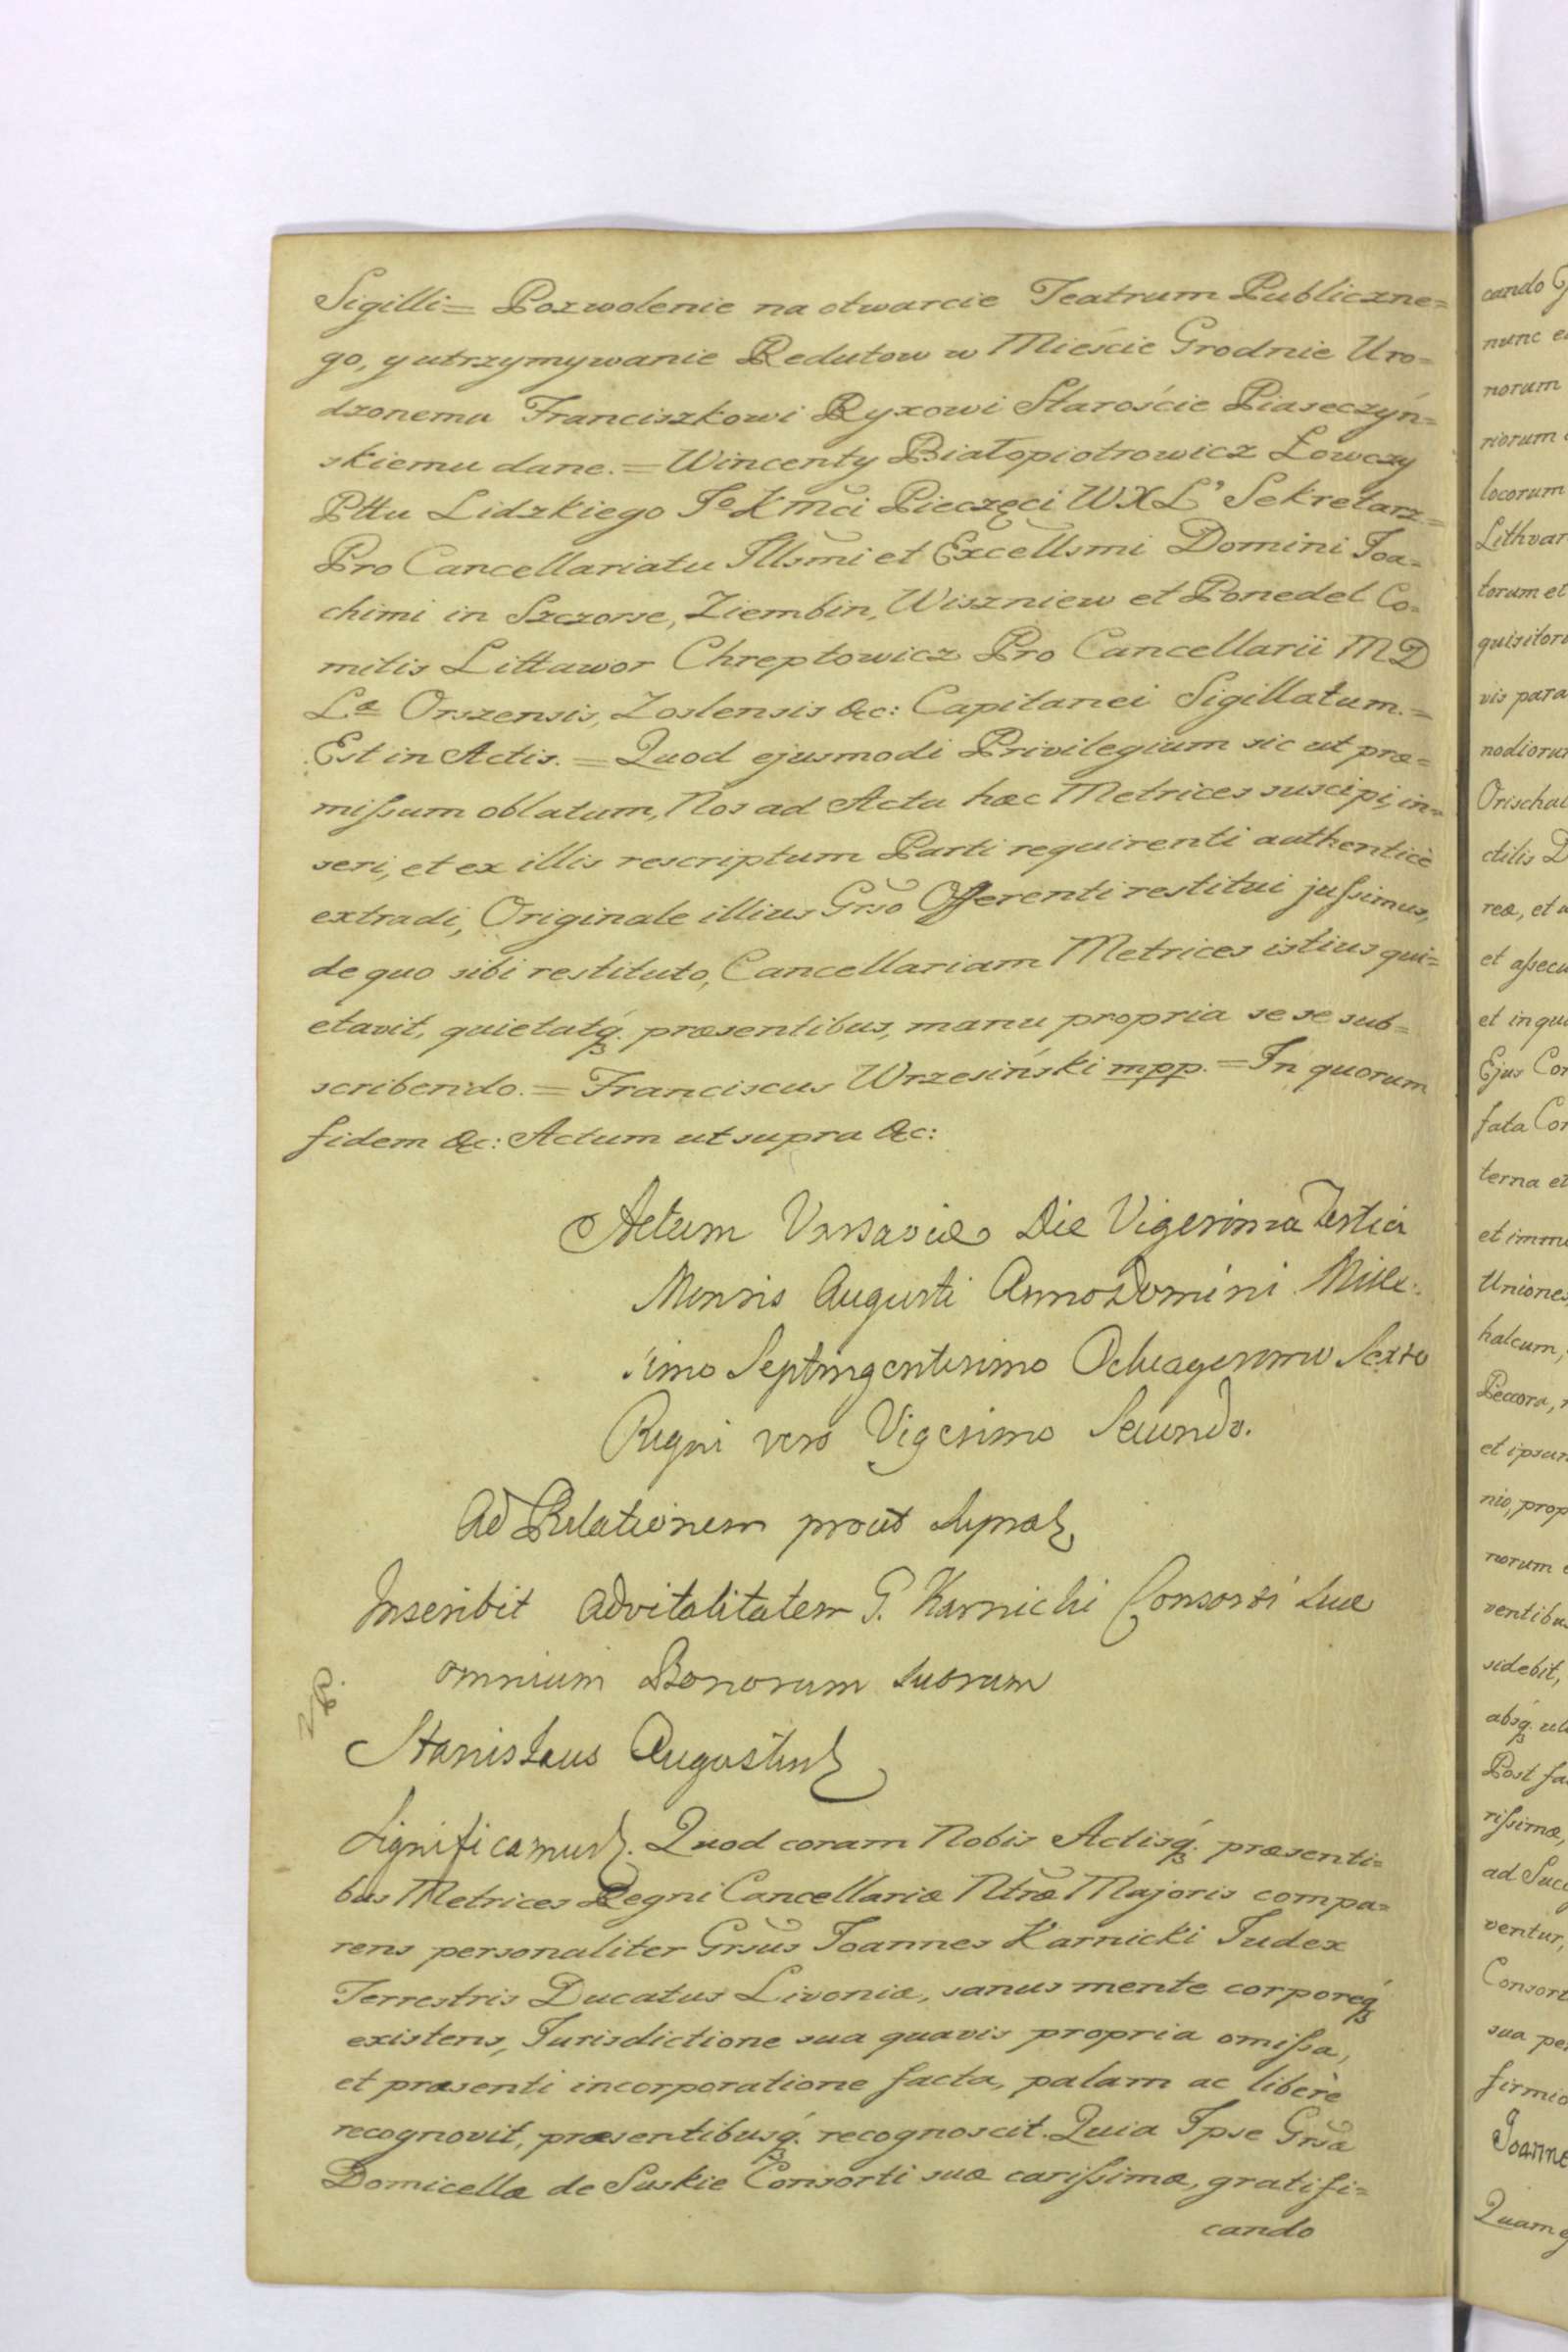 Sigilli = Pozwolenie na otwarcie Teatrum Publiczne=
go, y utrzymywanie Redutow w Mieście Grodnie Uro=
dzonemu Franciszkowi Ryxowi Staroście Piaseczyń=
skiemu dane. = Wincenty Białopiotrowicz Łowczy
Pttu Lidzkiego Jo K mci Pieczęci WXL' Sekretarz =
Pro Cancellariatu Illsmi et Excellsmi Domini Joa=
chimi in Szczorse, Ziembin, Wiszniew et Ponedel Co=
mitis Littawor Chreptowicz Pro Cancellarii M D
Læ Orszensis, Zoslensis &c: Capitanei Sigillatum. =
Est in Actis. = Quod ejusmodi Privilegium sic ut præ=
missum oblatum, Nos ad Acta hæc Metrices suscipi, in=
seri, et ex illis rescriptum Parti requirenti authenticè
extradi, Originale illius Grso Offerenti restitui jussimus,
de quo sibi restituto, Cancellariam Metrices istius qui=
etavit, quietatq. præsentibus, manu propria se se sub=
scribendo. = Franciscus Wrzesiński mpp. = In quorum
fidem &c: Actum ut supra &c:
Actum Varsaviæ Die Vigesima Tertia
Mensis Augusti Anno Domini Mille-
simo Septingentesimo Octuagesimo Sexto
Regni vero Vigesimo Secundo.
Ad Relationem prout supra
Inscribit advitalitatem G. Karnicki Consorti suæ
omnium Bonorum suorum
Stanislaus Augustus
Significamus. Quod coram Nobis Actisq. præsenti=
bus Metrices Regni Cancellariæ Ntræ Majoris compa=
rens personaliter Grsus Joannes Karnicki Judex
Terrestris Ducatus Livoniæ, sanus mente corporeq
existens, Jurisdictione sua quavis propria omissa,
et præsenti incorporatione facta, palam ac liberè
recognovit, præsentibusq. recognoscit. Quia Ipse Grsa
Domicellæ de Suskie Consorti suæ carissimæ, gratifi=
cando
cando G
nunc e
norum
riorum
locorum
Lithvan
torum et
quisitor
vis para
nodioru
Orischal
ctilis D
reæ, et a
et assecu
et in qu
Ejus Con
fata Con
terna et
et immu
Uniones
halcum,
Peccora,
et ipsar
nio, prop
norum
ventibus
sidebit,
absq. ul
Post fa
rissimæ,
ad Succ
ventur,
Consort
sua per
firmio
Joanne
Quam e